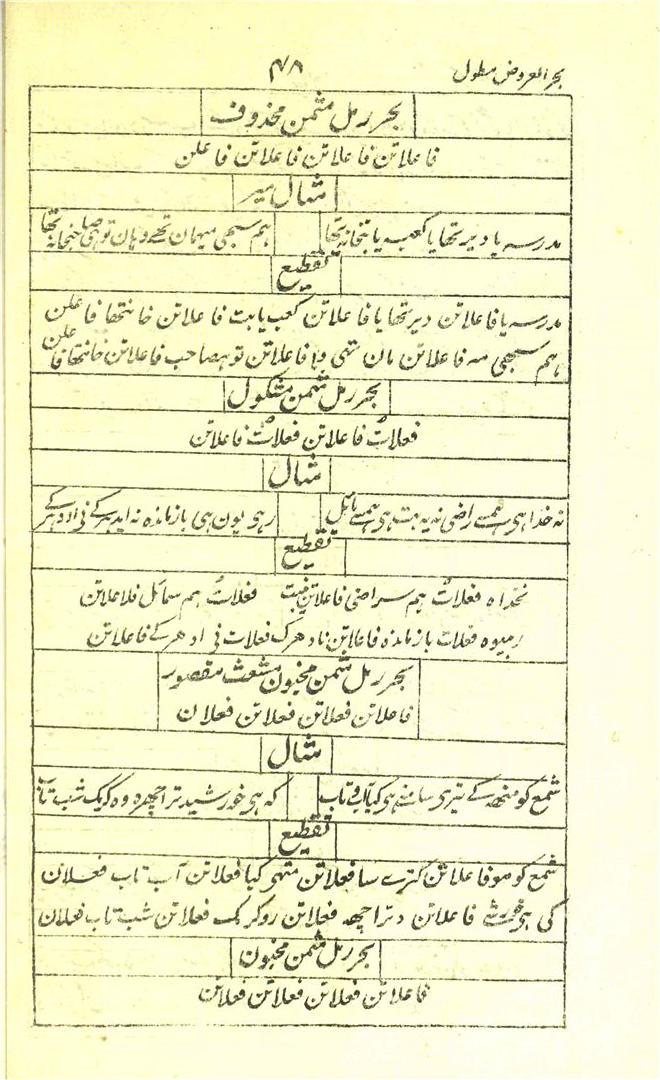 بحر العروض مطول
۴۸
بحر رمل مثمن محذوف
فاعلاتن فاعلاتن فاعلاتن فاعلن
مثال میر
مدرسہ یا دیر تھا یا کعبہ یا بتخانہ تھا
ہم سبھی میہمان تھے وہان تو ھی صاحبخانہ تھا
تقطیع
مدرسہ یا فاعلاتن دیر تھا یا فاعلاتن کعب یا بت فاعلاتن خانتھا فاعلن
ہم سبھی مہ فاعلاتن مان تہی وہا فاعلاتن تو ہصاحب فاعلاتن خانتھا فاعلن
بحر رمل مثمن مشکول
فعلاتُ فاعلاتن فعلاتُ فاعلاتن
مثال
نہ خدا ہی ہمسے راضی نہ یہ بت ہی ہمسے مائل
رہی یون ہی باز ماندہ نہ ایدہر کے نی اودہر کے
تقطیع
نخداہ فعلاتُ ہم سراضی فاعلاتن فعلاتُ ہم سمائل فلاعلاتن
رہیوہ فعلات باز ماندہ فاعلاتن نادھرک فعلات نی ادھر کے فاعلاتن
بحر رمل مثمن مخبون مشعث مقصور
فاعلاتن فعلاتن فعلاتن فعلان
مثال
شمع کو منھ کے تیری سامنے ہی کیا آب و تاب
کہ ہی خورشید ترا چھرہ وہ کرمک شب تاب
تقطیع
شمع کو مو فاعلاتن کترے سا فعلاتن منہی کیا فعلاتن آب تاب فعلان
کی ہی فاعلاتن د ترا چھہ فعلاتن روکرمک فعلاتن شب تاب فعلان
بحر رمل مثمن مخبون
فاعلاتن فعلاتن فعلاتن فعلاتن